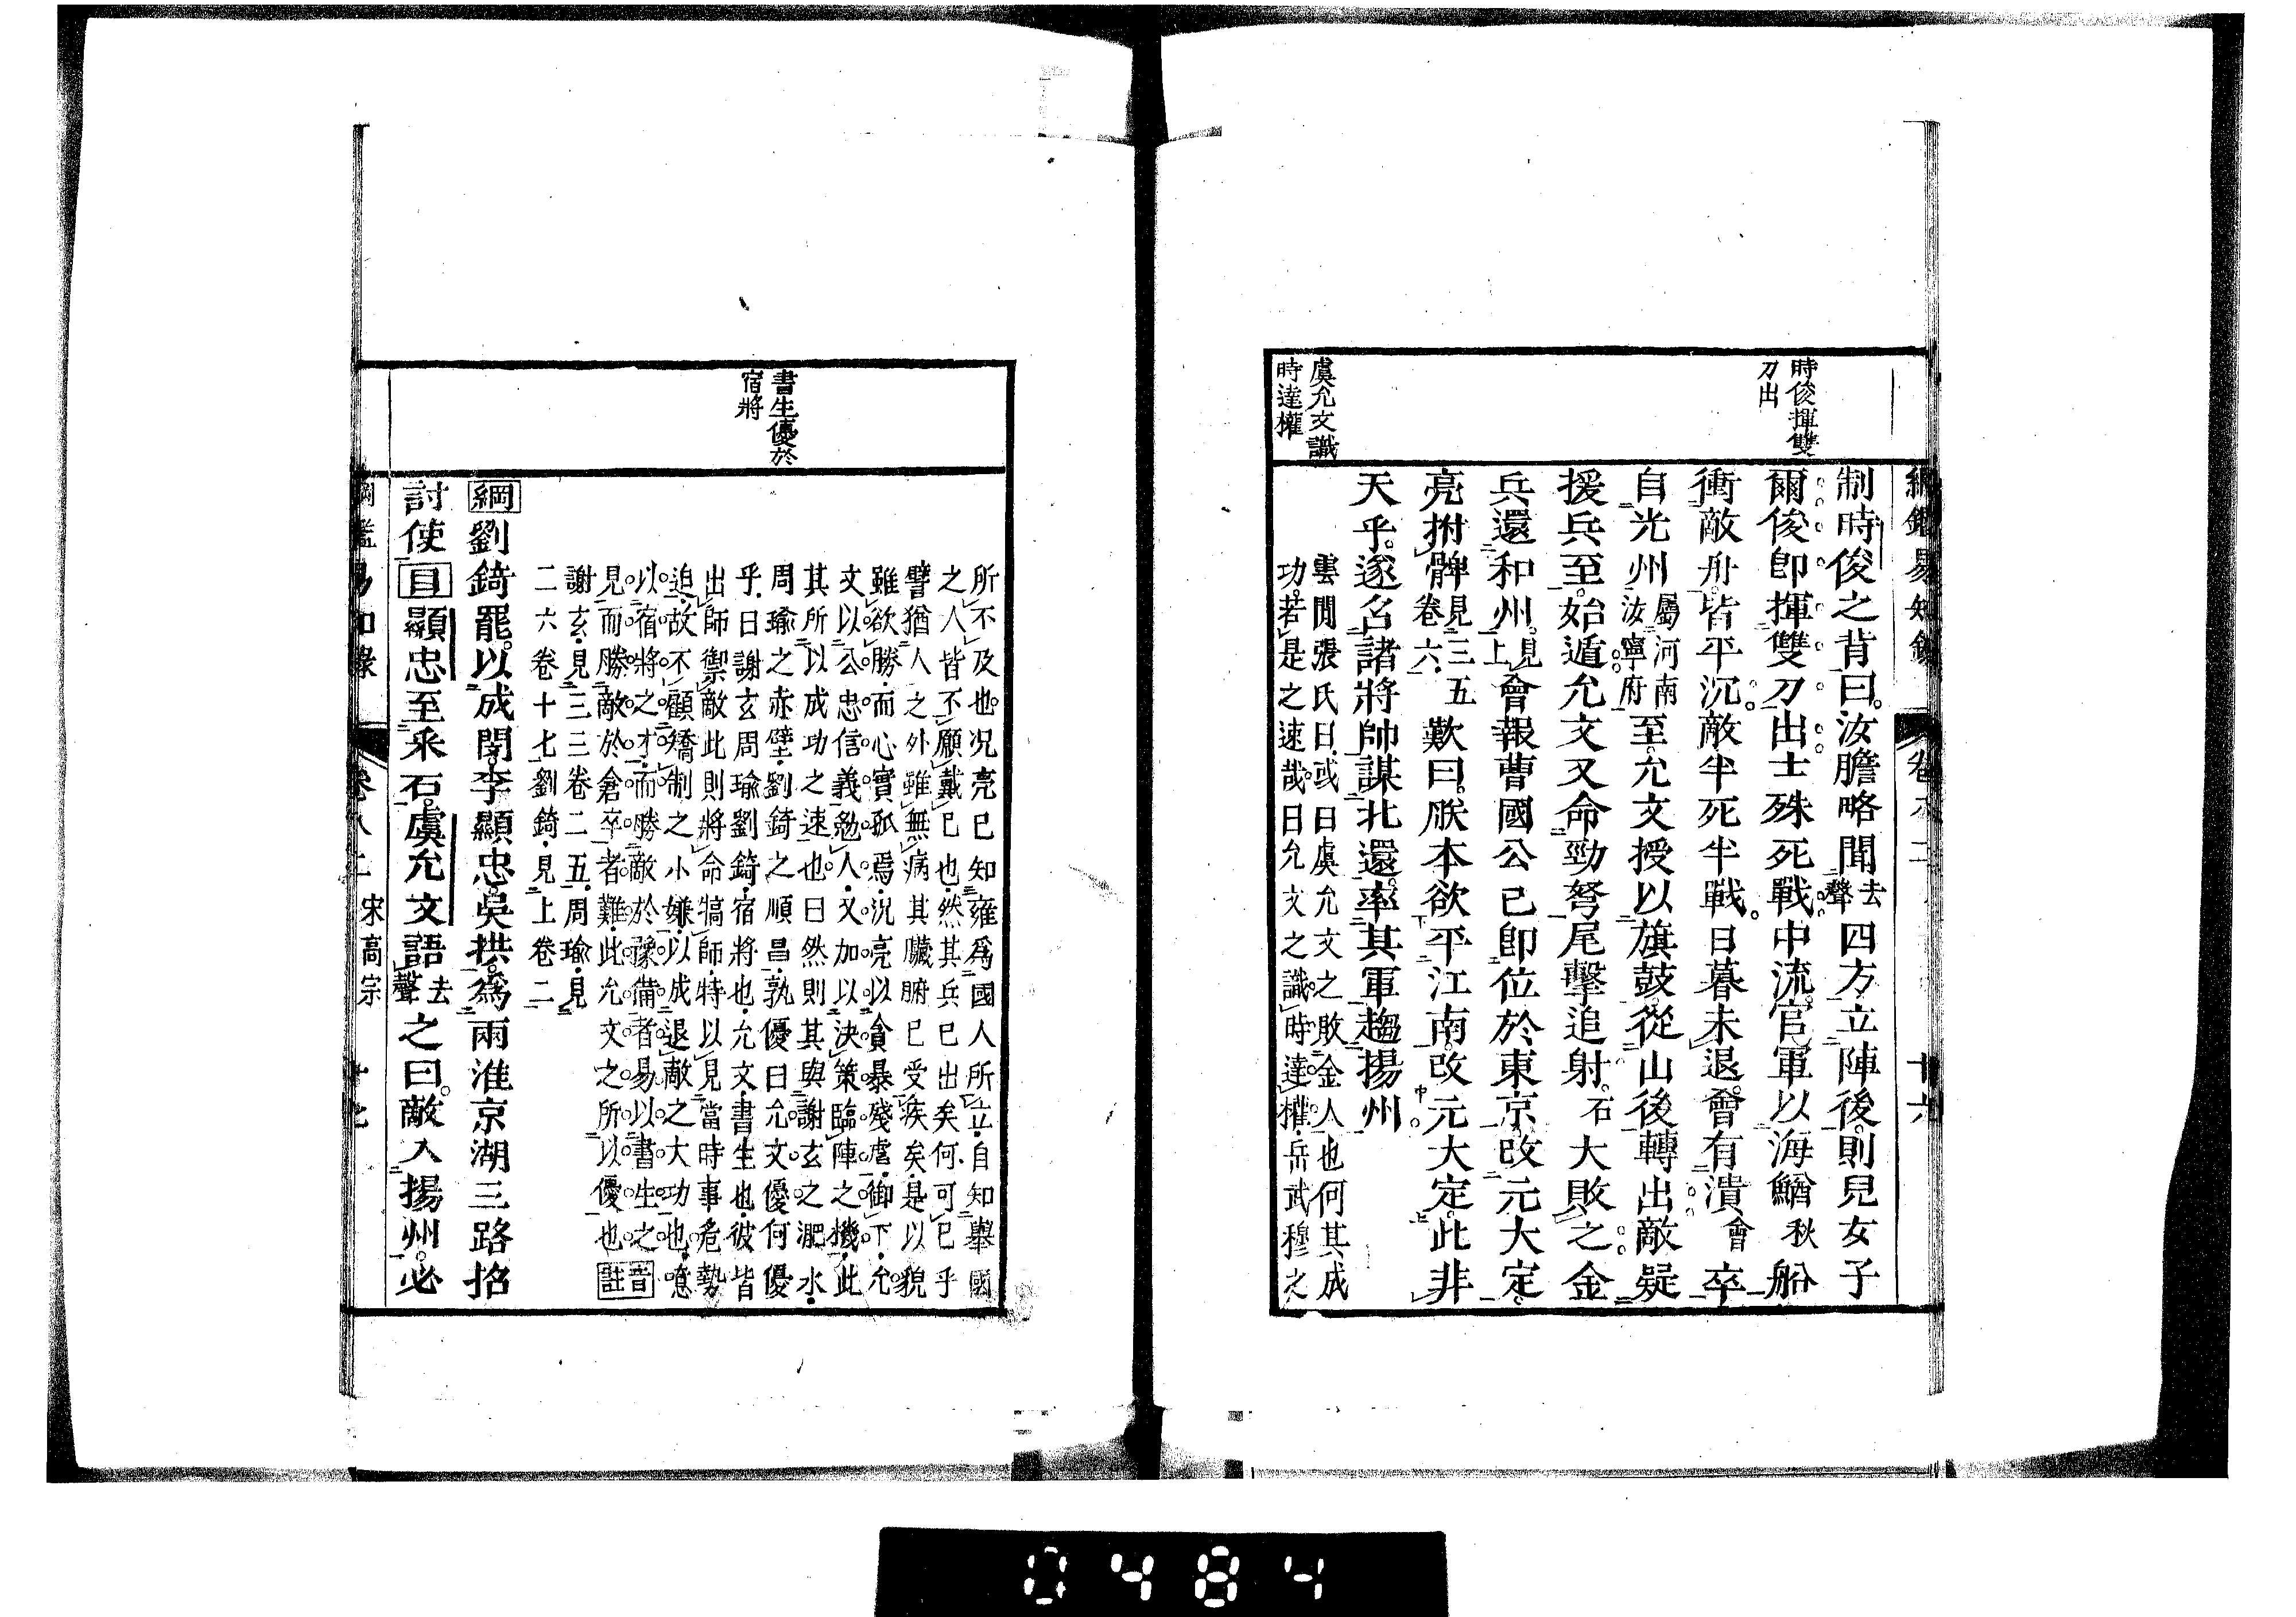 時俊揮雙
刀出
虞允文識
時達權
制時俊之背曰汝膽略聞去聲四方立陣後則兒女子
爾俊卽揮雙刀出士殊死戰中流官軍以海鰌秋船
衝敵舟皆平沉敵半死半戰日暮未退會有潰會卒
自光州屬河南汝寧府至允文授以旗鼓從山後轉出敵疑
援兵至始遁允文又命勁弩尾擊追射石大敗之金
兵還和州見上會報曹國公已卽位於東京改元大定
亮拊髀見三五卷六歎曰朕本欲平江南改元大定此非
天乎遂召諸將帥謀北還率其軍趨揚州
雲閒張氏曰或曰虞允文之敗金人也何其成
功若是之速哉曰允文之識時達權岳武穆之
書生優於
宿將
所不及也况亮已知雍爲國人所立自知舉國
之人皆不願戴已也然其兵已出矣何可已乎
譬猶人之外雖無病其臟腑已受疾矣是以貌
雖欲勝而心實孤焉況亮以貪暴殘虐御下允
文以公忠信義勉人又加以決策臨陣之機此
其所以成功之速也曰然則其與謝玄之淝水
周瑜之赤壁劉錡之順昌孰優曰允文優何優
乎曰謝玄周瑜劉錡宿將也允文書生也彼皆
出師禦敵此則將命犒師特以見當時事危勢
迫故不顧矯制之小嫌以成退敵之大功也噫
以宿將之才而勝敵於豫備者易以書生之
見而勝敵於倉卒者難此允文之所以優也音註
謝玄見三三卷二五周瑜見
二六卷十七劉錡見上卷二
綱劉錡罷以成閔李顯忠吳拱爲兩淮京湖三路招
討使目顯忠至采石虞允文語去聲之曰敵入揚州必
宋高宗
0484